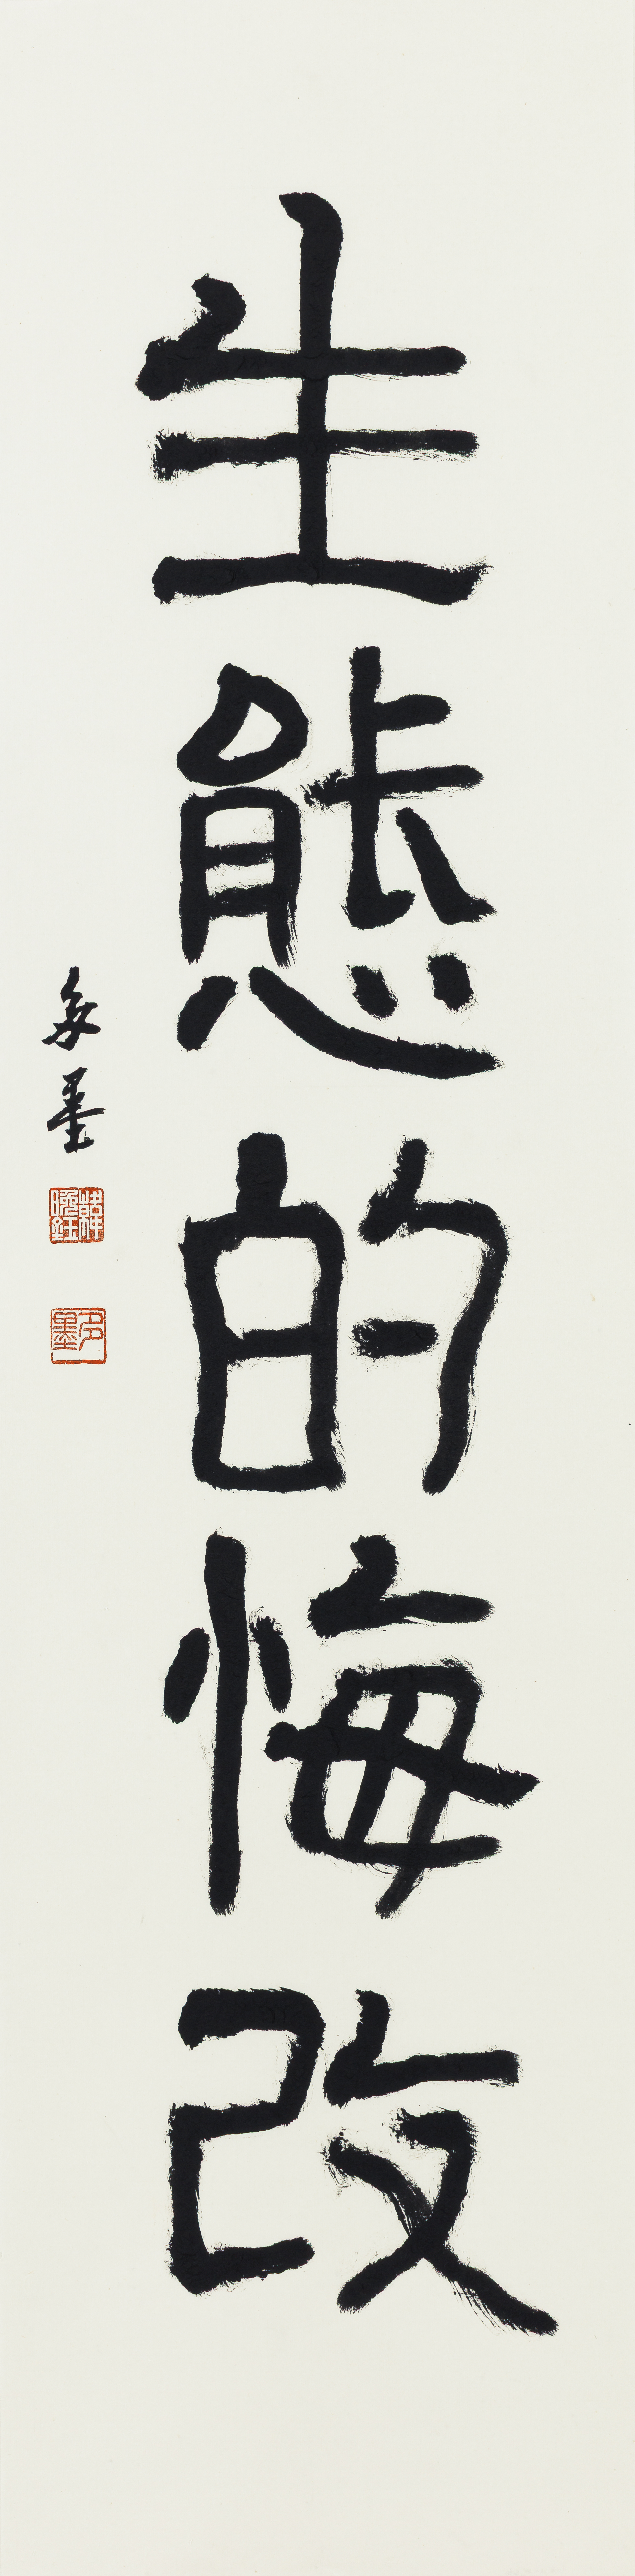 生態的悔改
多墨
韓晚鈺
多墨